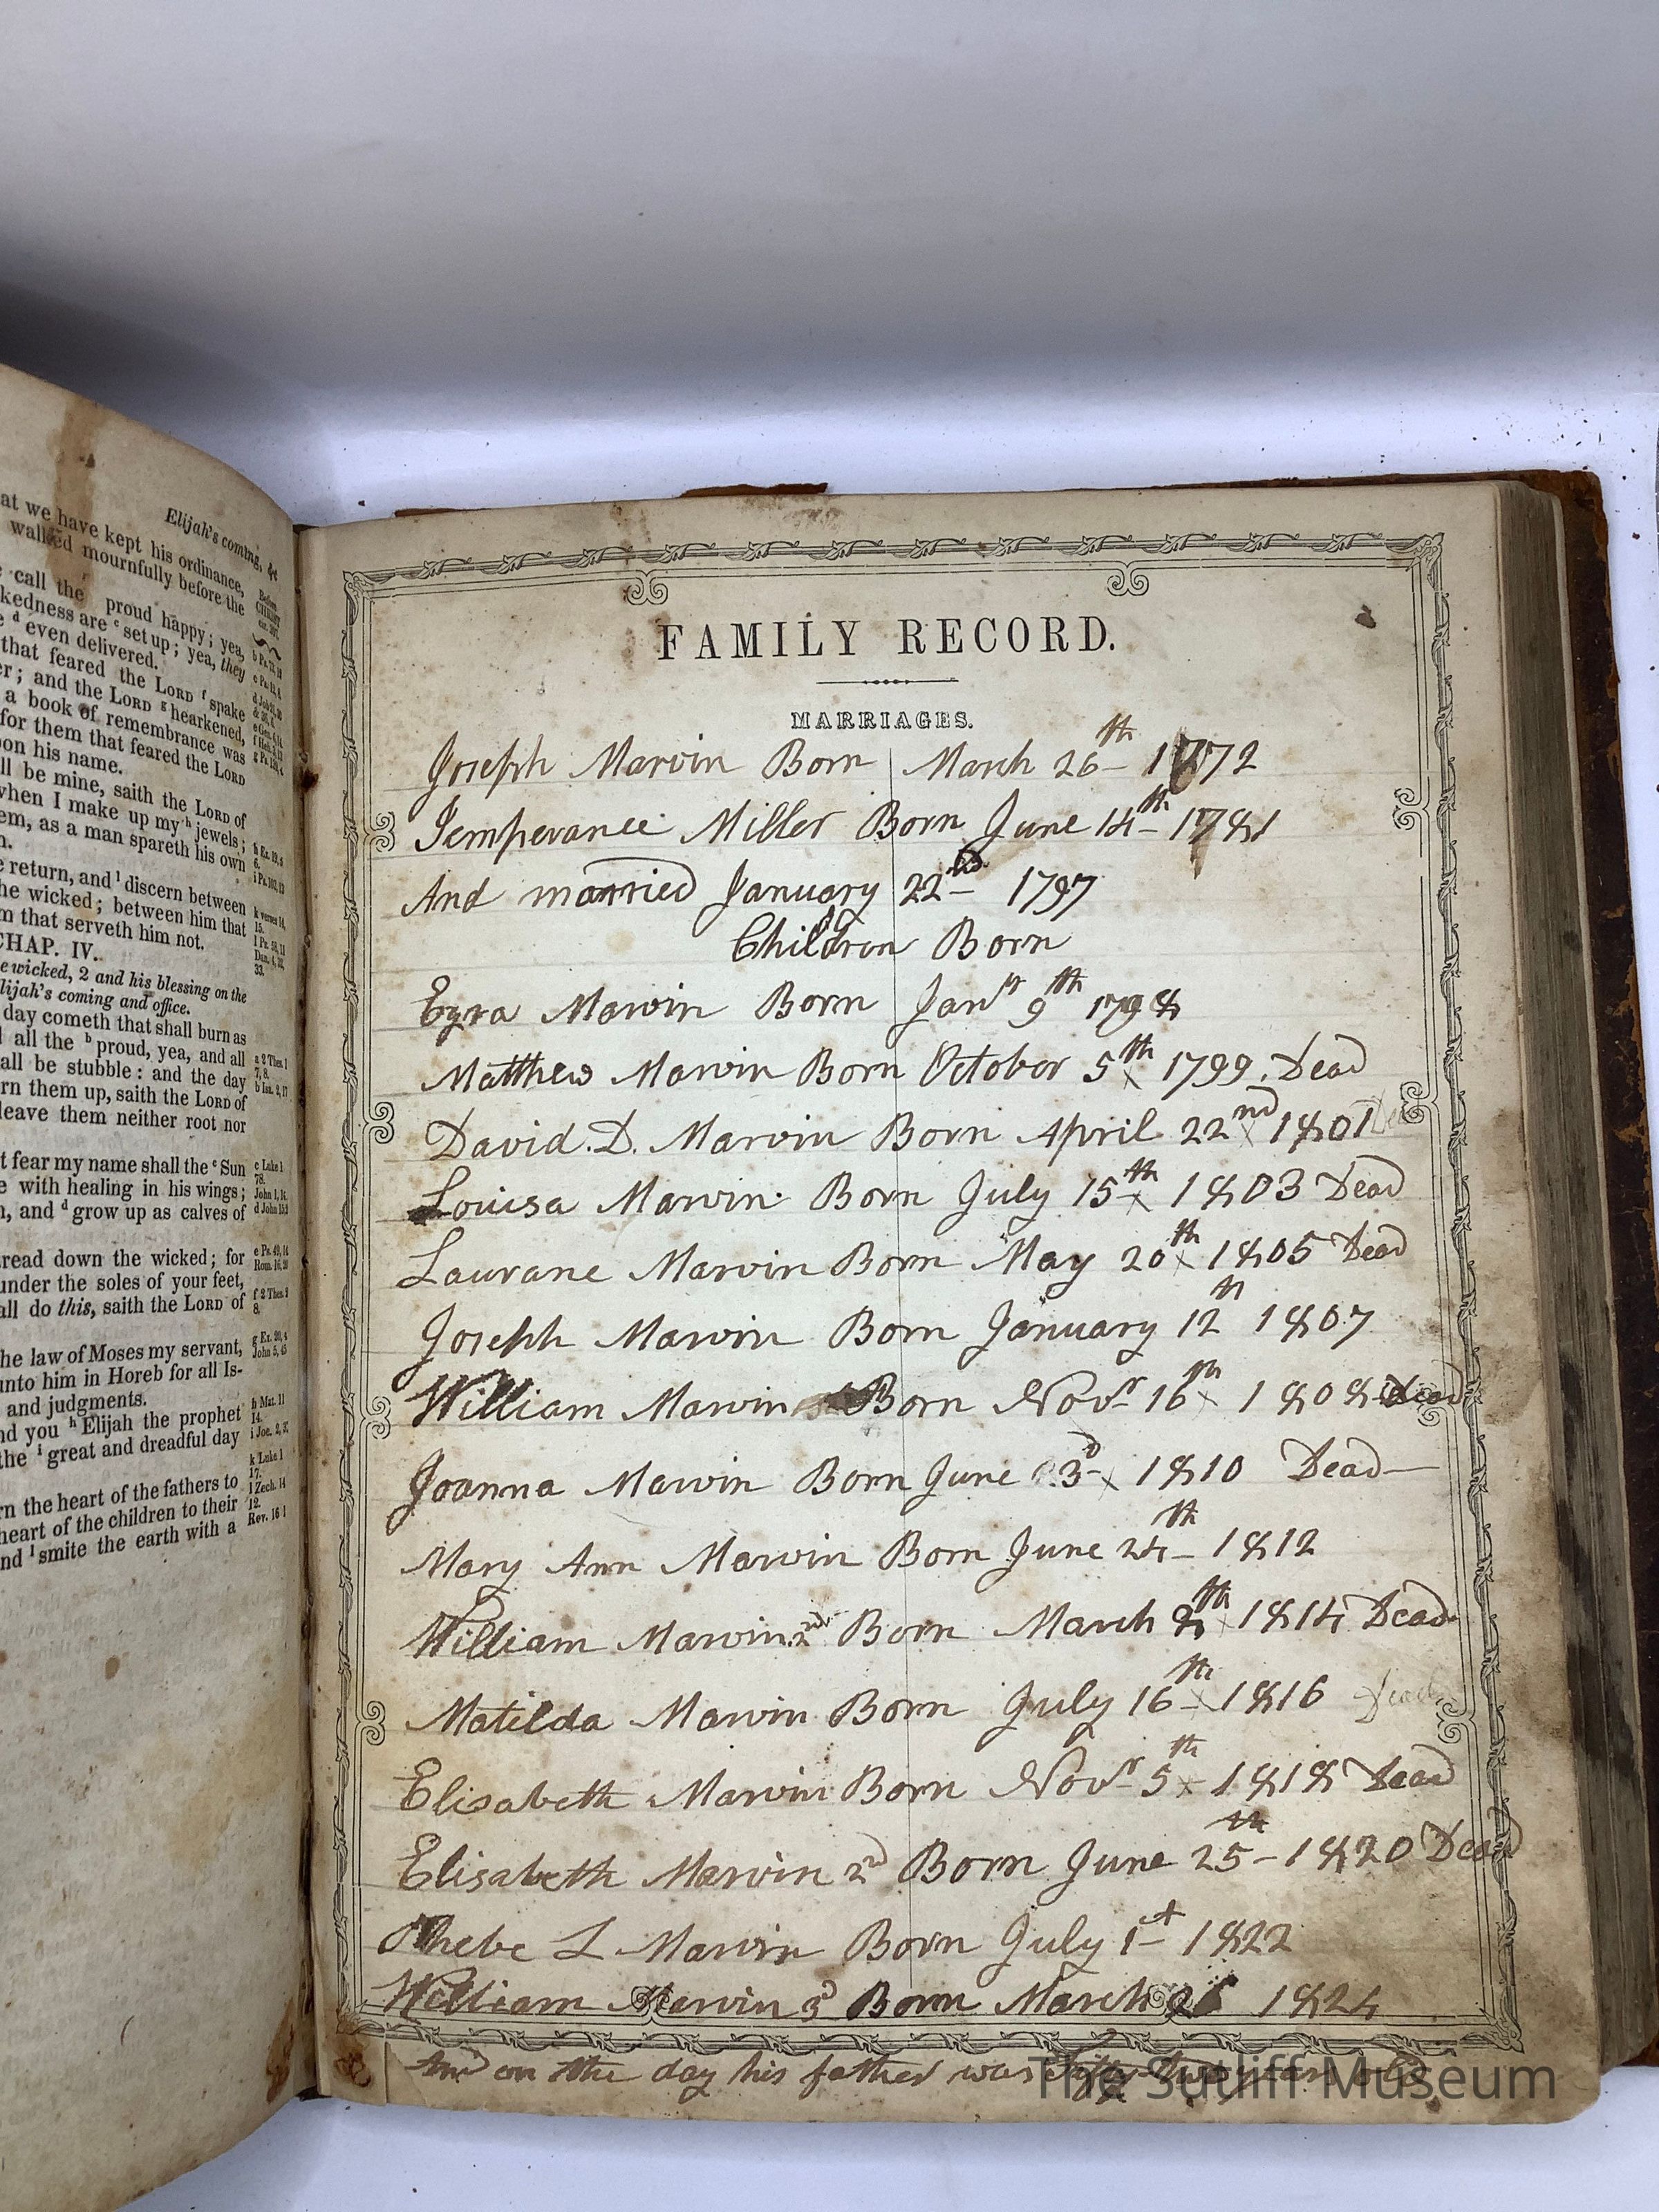 Elijah's coming, &c
at we have kept his ordinance,
walked mournfully before the
call the proud happy; yea,
kedness are c set up; yea, they
d even delivered.
that feared the LORD f spake
er; and the LORD g hearkened,
a book of remembrance was
for them that feared the LORD
on his name.
ll be mine, saith the LORD of
when I make up my h jewels;
em, as a man spareth his own
n.
return, and l discern between
he wicked; between him that
m that serveth him not.
CHAP. IV.
e wicked, 2 and his blessing on the
lijah's coming and office.
day cometh that shall burn as
the b proud, yea, and all
all be stubble: and the day
rn them up, saith the LORD of
leave them neither root nor
t fear my name shall the c Sun
e with healing in his wings;
, and d grow up as calves of
read down the wicked; for
under the soles of your feet,
all do this, saith the LORD of
he law of Moses my servant,
unto him in Horeb for all Is-
and judgments.
nd you h Elijah the prophet
the i great and dreadful day
rn the heart of the fathers to
heart of the children to their
nd l smite the earth with a
FAMILY RECORD.
MARRIAGES.
Joseph Marvin Born March 26th 1772
Temperance Miller Born June 14th 1781
And married January 22nd 1797
Children Born
Ezra Marvin Born Janry 9th 1798
Matthew Marvin Born October 5th x 1799. Dead
David. D. Marvin Born April 22nd x 1801 De
Louisa Marvin Born July 15th x 1803 Dead
Laurane Marvin Born May 20th x 1805 Dead
Joseph Marvin Born January 12th 1807
William Marvin Born Novr 16th x 1808 Dead
Joanna Marvin Born June 3d x 1810 Dead
Mary Ann Marvin Born June 24th 1812
William Marvin 2nd Born March 8th x 1814 Dead
Matilda Marvin Born July 16th x 1816 Dead
Elisabeth Marvin Born Novr 5th x 1818 Dead
Elisabeth Marvin 2d Born June 25th 1820 Dead
Phebe L Marvin Born July 1st 1822
William Marvin 3d Born March 26 1824
And on the day his father was fifty two years old
The Sutliff Museum